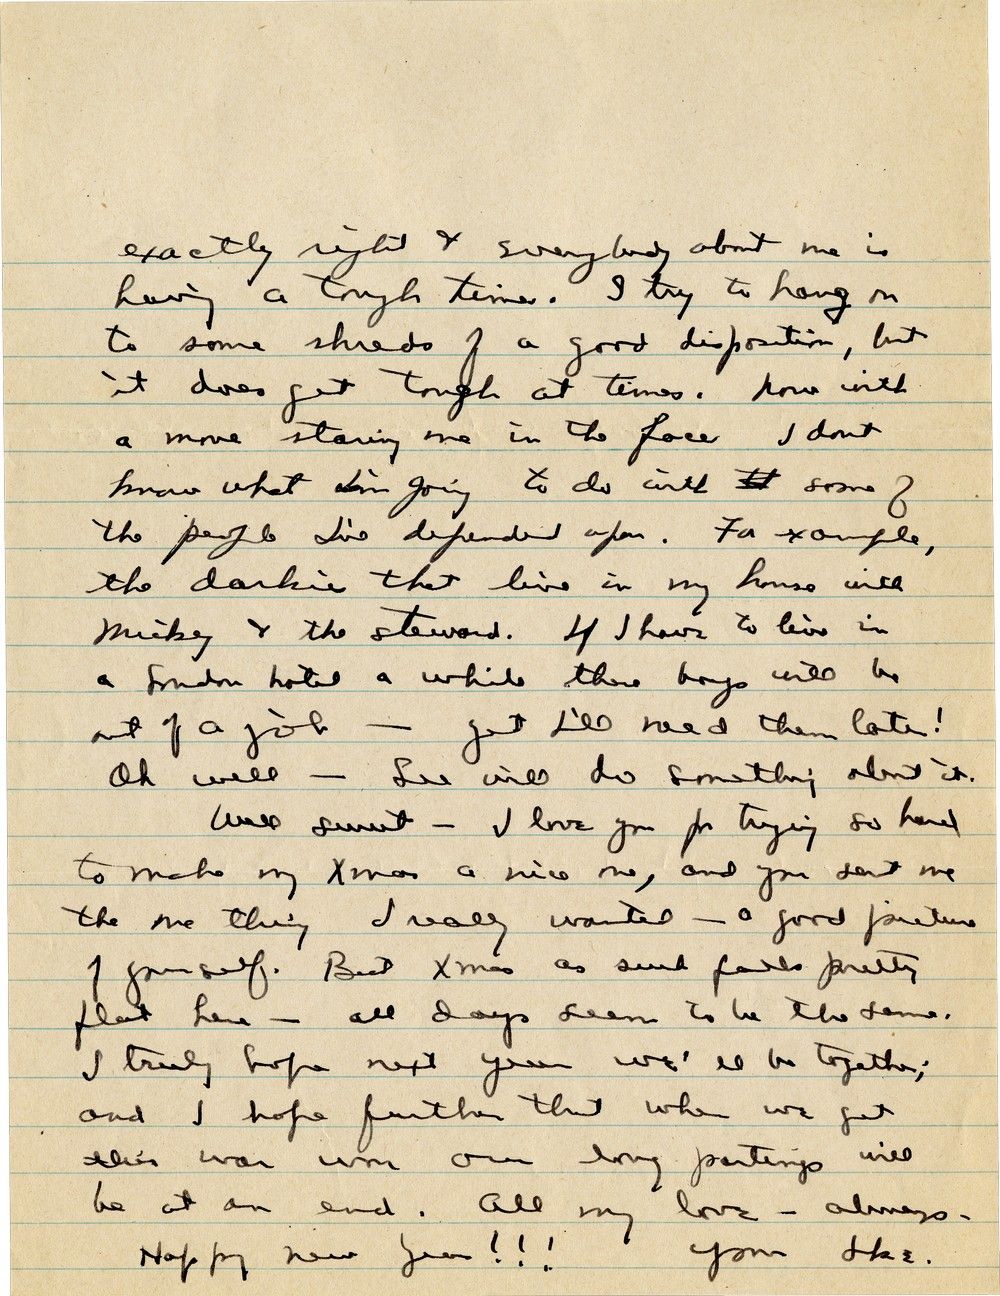 exactly right & everybody about me is
having a tough time. I try to hang on
to some shreds of a good disposition, but
it does get tough at times. Now with
a move staring me in the face I dont
know what I'm going to do with some of
the people I've depended upon. For example,
the darkies that live in my house with
Mickey & the steward. If I have to live in
a London hotel a while these boys will be
out of a job — yet I'll need them later!
Oh well — Lee will do something about it.
Well sweet — I love you for trying so hard
to make my Xmas a nice one, and you sent me
the one thing I really wanted — a good picture
of yourself. But Xmas as such falls pretty
flat here — all days seem to be the same.
I truly hope next year we'll be together;
and I hope further that when we get
this war won our long partings will
be at an end. All my love — always —
Happy New Year!!! Your Ike.